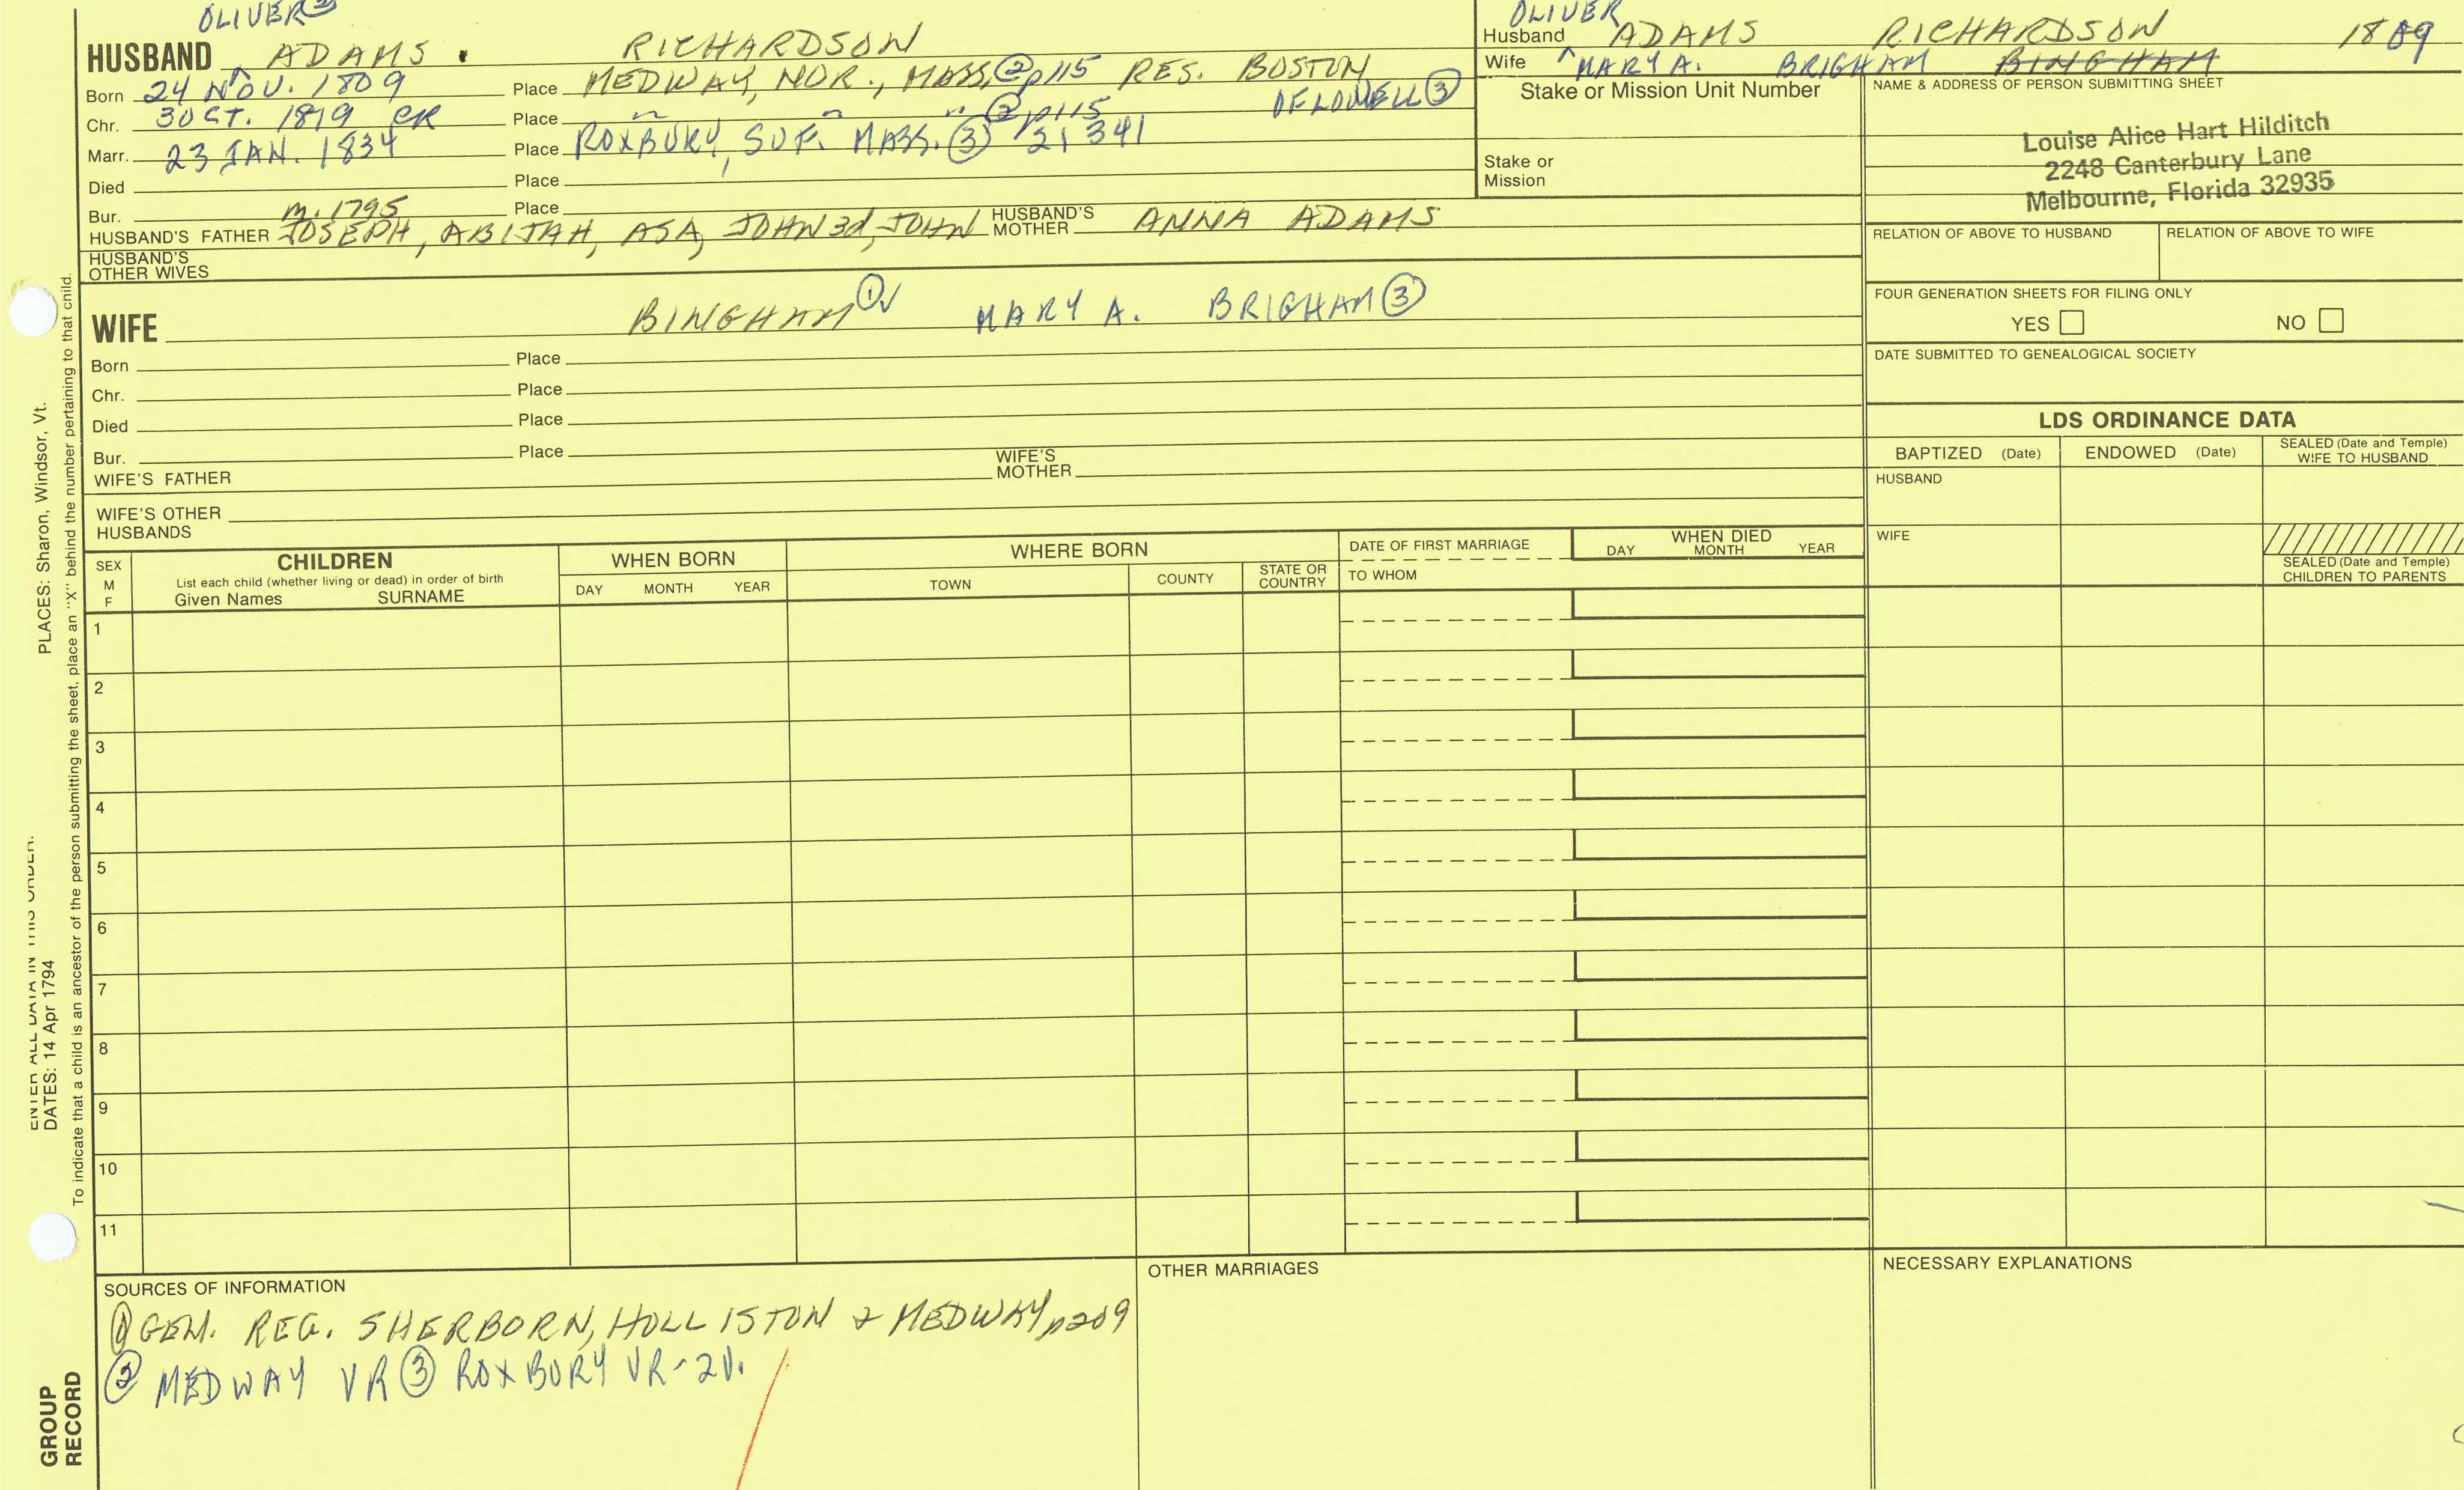 OLIVER ②
HUSBAND ^ ADAMS . RICHARDSON
Born 24 NOV. 1809 Place MEDWAY, NOR., MASS, ② p115 RES. BOSTON
OF LOWELL ③
Chr. 3 OCT. 1819 CR Place " " " ② p115
Marr. 23 JAN. 1834 Place ROXBURY, SUF. MASS. ③ 2; 341
Died Place
Bur. Place
m. 1795
HUSBAND'S FATHER JOSEPH, ABIJAH, ASA, JOHN 3d, JOHN HUSBAND'S MOTHER ANNA ADAMS
HUSBAND'S
OTHER WIVES
WIFE BINGHAM ①✓ MARY A. BRIGHAM ③
Born Place
Chr. Place
Died Place
Bur. Place
WIFE'S FATHER WIFE'S MOTHER
WIFE'S OTHER
HUSBANDS
OLIVER
Husband ^ ADAMS RICHARDSON 1809
Wife MARY A. BRIGHAM BINGHAM
Stake or Mission Unit Number
Stake or
Mission
NAME & ADDRESS OF PERSON SUBMITTING SHEET
Louise Alice Hart Hilditch
2248 Canterbury Lane
Melbourne, Florida 32935
RELATION OF ABOVE TO HUSBAND RELATION OF ABOVE TO WIFE
FOUR GENERATION SHEETS FOR FILING ONLY
YES NO
DATE SUBMITTED TO GENEALOGICAL SOCIETY
LDS ORDINANCE DATA
BAPTIZED (Date) ENDOWED (Date) SEALED (Date and Temple)
WIFE TO HUSBAND
HUSBAND
WIFE
SEALED (Date and Temple)
CHILDREN TO PARENTS
SEX
M
F
CHILDREN
List each child (whether living or dead) in order of birth
Given Names SURNAME
WHEN BORN
DAY MONTH YEAR
WHERE BORN
TOWN COUNTY STATE OR COUNTRY
DATE OF FIRST MARRIAGE
TO WHOM
WHEN DIED
DAY MONTH YEAR
1
2
3
4
5
6
7
8
9
10
11
SOURCES OF INFORMATION
① GEN. REG. SHERBORN, HOLLISTON & MEDWAY p209
② MEDWAY VR ③ ROXBURY VR-2V.
OTHER MARRIAGES
NECESSARY EXPLANATIONS
ENTER ALL DATA IN THIS ORDER:
DATES: 14 Apr 1794 PLACES: Sharon, Windsor, Vt.
To indicate that a child is an ancestor of the person submitting the sheet, place an "X" behind the number pertaining to that child.
GROUP
RECORD